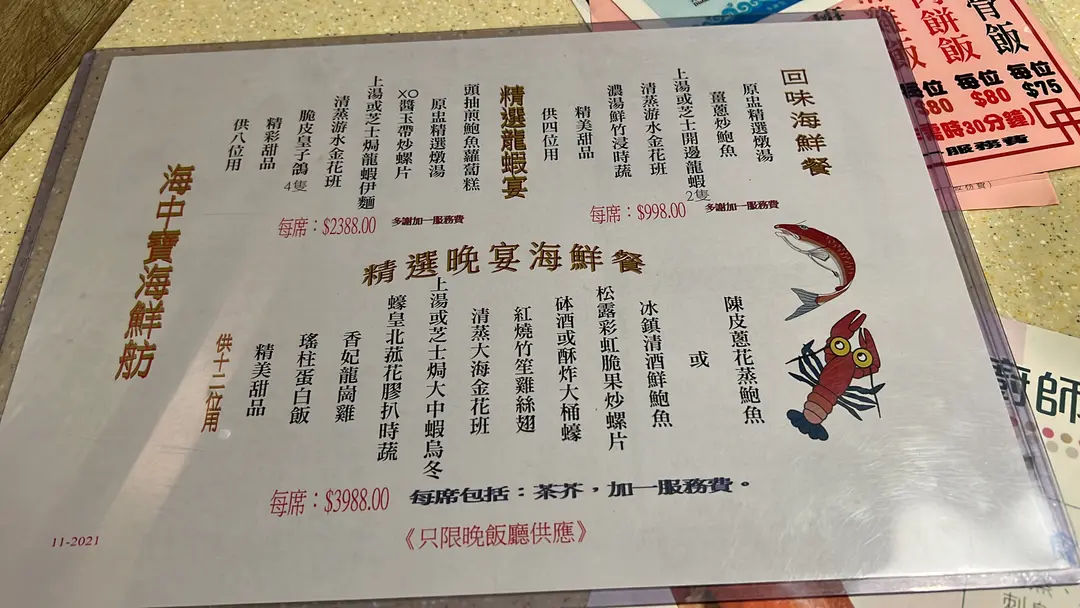 回味海鮮餐
原盅精選燉湯
薑蔥炒鮑魚
上湯或芝士開邊龍蝦2隻
清蒸游水金花班
濃湯鮮竹浸時蔬
精美甜品
供四位用
每席：$998.00
多謝加一服務費
精選龍蝦宴
頭抽煎鮑魚蘿蔔糕
原盅精選燉湯
XO醬玉帶炒螺片
上湯或芝士焗龍蝦伊麵
清蒸游水金花班
脆皮皇子鴿4隻
精彩甜品
供八位用
每席：$2388.00
多謝加一服務費
精選晚宴海鮮餐
陳皮蔥花蒸鮑魚
或
冰鎮清酒鮮鮑魚
松露彩虹脆果炒螺片
砵酒或酥炸大桶蠔
紅燒竹笙雞絲翅
清蒸大海金花班
上湯或芝士焗大中蝦烏冬
蠔皇北菰花膠扒時蔬
香妃龍崗雞
瑤柱蛋白飯
精美甜品
供十二位用
每席：$3988.00
每席包括：茶芥，加一服務費。
《只限晚飯廳供應》
海中寶海鮮舫
11-2021
骨飯
餅飯
飯
每位
$75
每位
$80
每位
$80
時30分鐘)
服務費
廚師